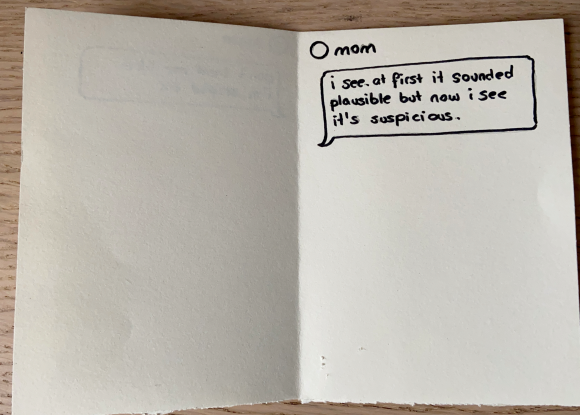 mom
i see. at first it sounded
plausible but now i see
it's suspicious.